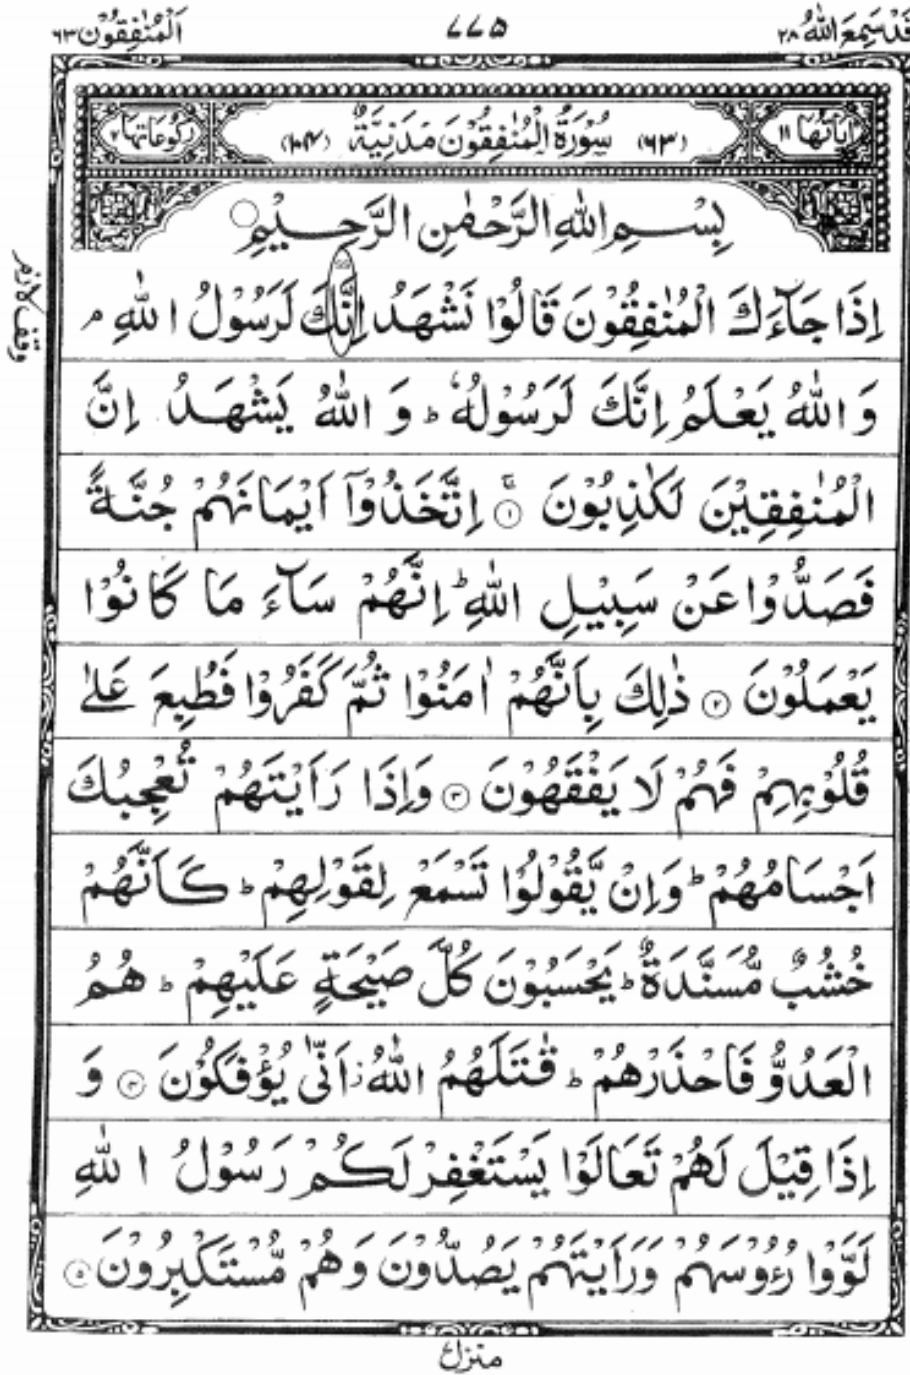 قَدْ سَمِعَ اللّٰهُ ٢٨
٧٧٥
اَلْمُنٰفِقُوْن ٦٣
اٰیَاتُهَا ١١
(٦٣) سُوْرَةُ الْمُنٰفِقُوْنَ مَدَنِيَّةٌ (١٠٤)
رُكُوْعَاتُهَا ٢
بِسْمِ اللّٰهِ الرَّحْمٰنِ الرَّحِيْمِ
اِذَا جَآءَكَ الْمُنٰفِقُوْنَ قَالُوْا نَشْهَدُ اِنَّكَ لَرَسُوْلُ اللّٰهِ ۘ
وقف لازم
وَ اللّٰهُ يَعْلَمُ اِنَّكَ لَرَسُوْلُهٗ ؕ وَ اللّٰهُ يَشْهَدُ اِنَّ
الْمُنٰفِقِيْنَ لَكٰذِبُوْنَ ۚ ١ اِتَّخَذُوْۤا اَيْمَانَهُمْ جُنَّةً
فَصَدُّوْا عَنْ سَبِيْلِ اللّٰهِ ؕ اِنَّهُمْ سَآءَ مَا كَانُوْا
يَعْمَلُوْنَ ٢ ذٰلِكَ بِاَنَّهُمْ اٰمَنُوْا ثُمَّ كَفَرُوْا فَطُبِعَ عَلٰى
قُلُوْبِهِمْ فَهُمْ لَا يَفْقَهُوْنَ ٣ وَاِذَا رَاَيْتَهُمْ تُعْجِبُكَ
اَجْسَامُهُمْ ؕ وَاِنْ يَّقُوْلُوْا تَسْمَعْ لِقَوْلِهِمْ ؕ كَاَنَّهُمْ
خُشُبٌ مُّسَنَّدَةٌ ؕ يَحْسَبُوْنَ كُلَّ صَيْحَةٍ عَلَيْهِمْ ؕ هُمُ
الْعَدُوُّ فَاحْذَرْهُمْ ؕ قٰتَلَهُمُ اللّٰهُ ز اَنّٰى يُؤْفَكُوْنَ ٤ وَ
اِذَا قِيْلَ لَهُمْ تَعَالَوْا يَسْتَغْفِرْ لَكُمْ رَسُوْلُ اللّٰهِ
لَوَّوْا رُءُوْسَهُمْ وَرَاَيْتَهُمْ يَصُدُّوْنَ وَهُمْ مُّسْتَكْبِرُوْنَ ٥
منزل